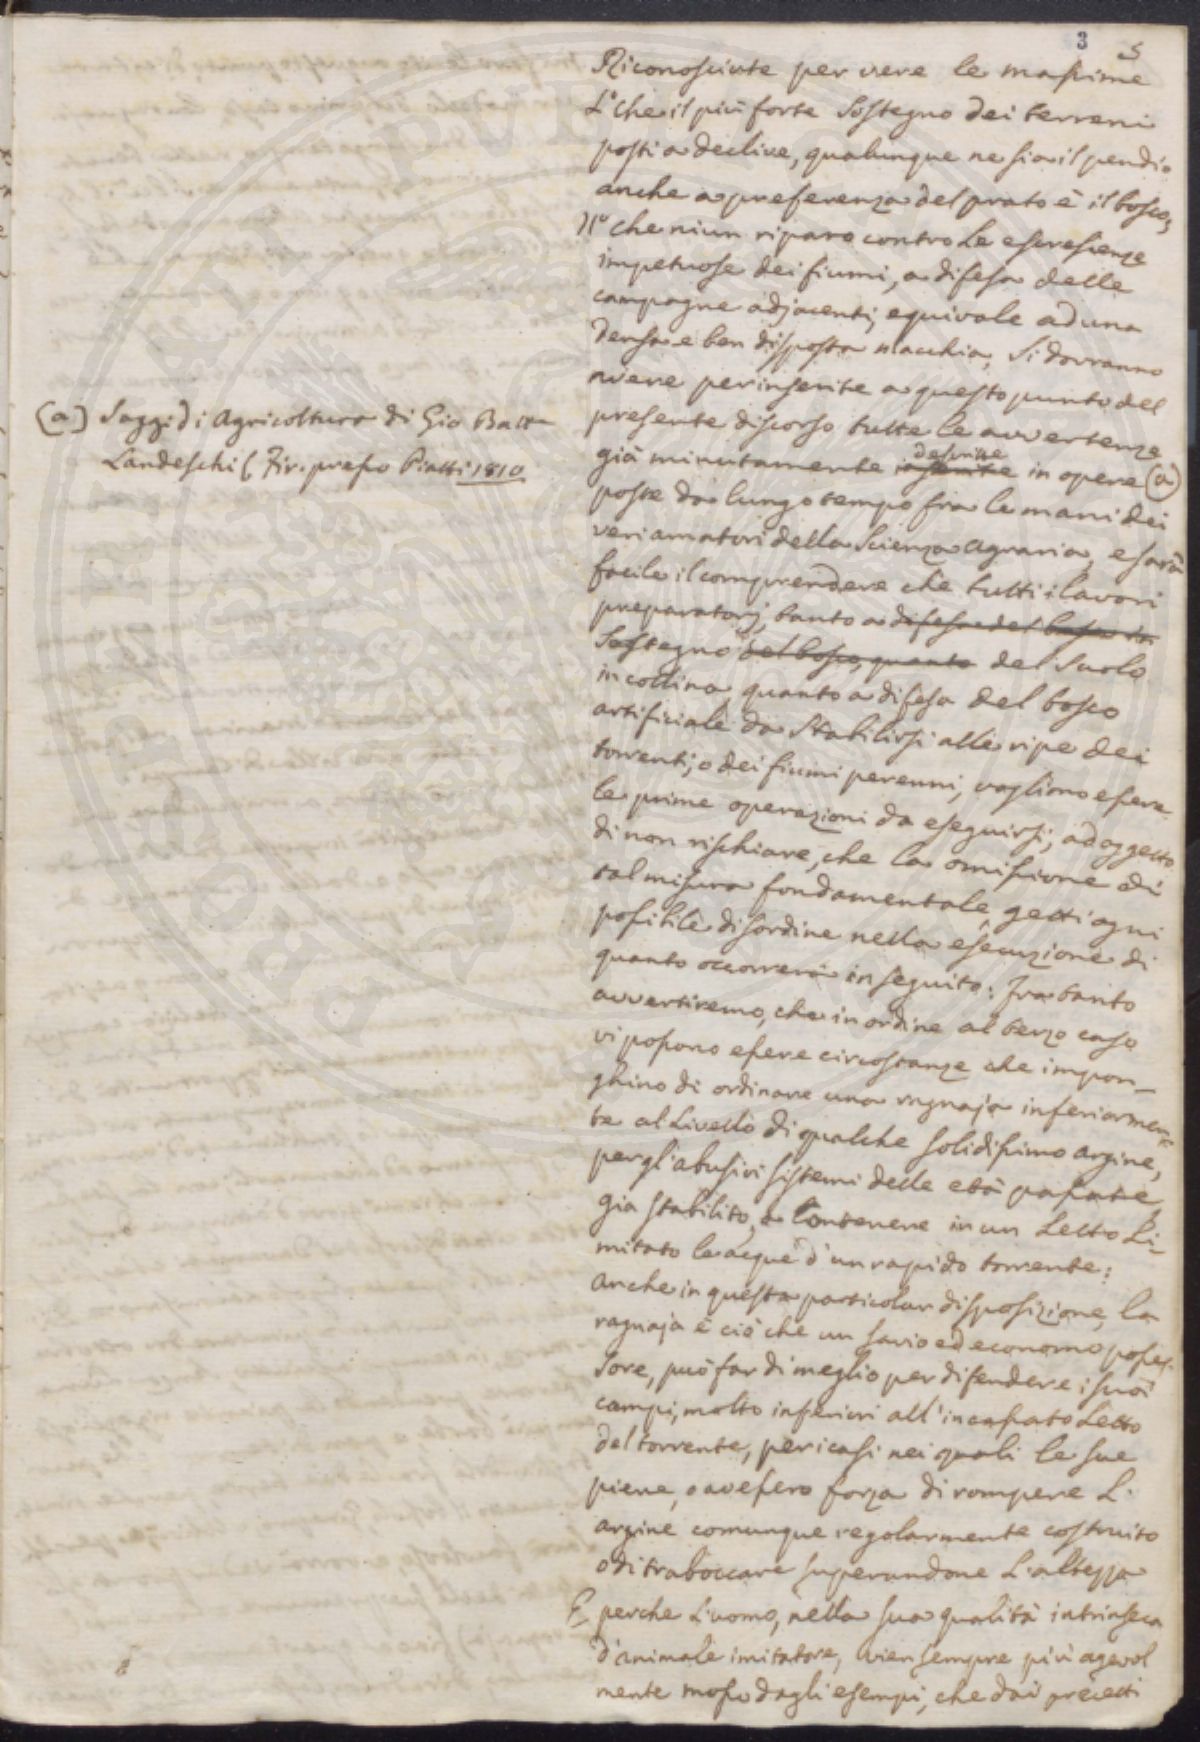 3 5
Riconosciute per vere le massime
1.° che il più forte sostegno dei terreni
posti a declive, qualunque ne sia il pendio
anche a preferenza del prato è il bosco,
II° che niun riparo contro le escrescenze
impetuose dei fiumi, a difesa delle
campagne adjacenti, equivale ad una
densa e ben disposta macchia, si dovranno
avere per inserite a questo punto del
presente discorso tutte le avvertenze
già minutamente inserite descritte in opere (a)
poste da lungo tempo fra le mani dei
veri amatori della Scienza agraria, e sarà
facile il comprendere che tutti i lavori
preparatorj, tanto a difesa del bosco in
Sostegno del bosco, quanto del Suolo
in collina, quanto a difesa del bosco
artificiale da stabilirsi alle ripe dei
torrenti, o dei fiumi perenni, vogliono essere
le prime operazioni da eseguirsi, ad oggetto
di non rischiare, che la omissione di
tal misura fondamentale, getti ogni
possibile disordine nella esecuzione di
quanto occorrerà in seguito: Frattanto
avvertiremo, che in ordine al terzo caso
vi possono essere circostanze che impon-
ghino di ordinare una ragnaja inferiormen=
te al Livello di qualche solidissimo argine,
per gli abusivi sistemi delle età passate,
già stabilito, a Contenere in un Letto Li-
mitato le acque d'un rapido torrente:
anche in questa particolar disposizione, la
ragnaja è ciò che un savio ed economo posses-
sore, può far di meglio per difendere i suoi
campi, molto inferiori all'incassato Letto
del torrente, per i casi nei quali le sue
piene, o avessero forza di rompere L'
argine comunque regolarmente costruito
o di traboccare superandone L'altezza
E perche L'uomo, nella sua qualità intrinseca
d'animale imitatore, vien sempre più agevol
mente mosso dagli esempi, che dai precetti
(a) Saggi di Agricoltura di Gio Batta
Landeschi (Fir. presso Piatti 1810